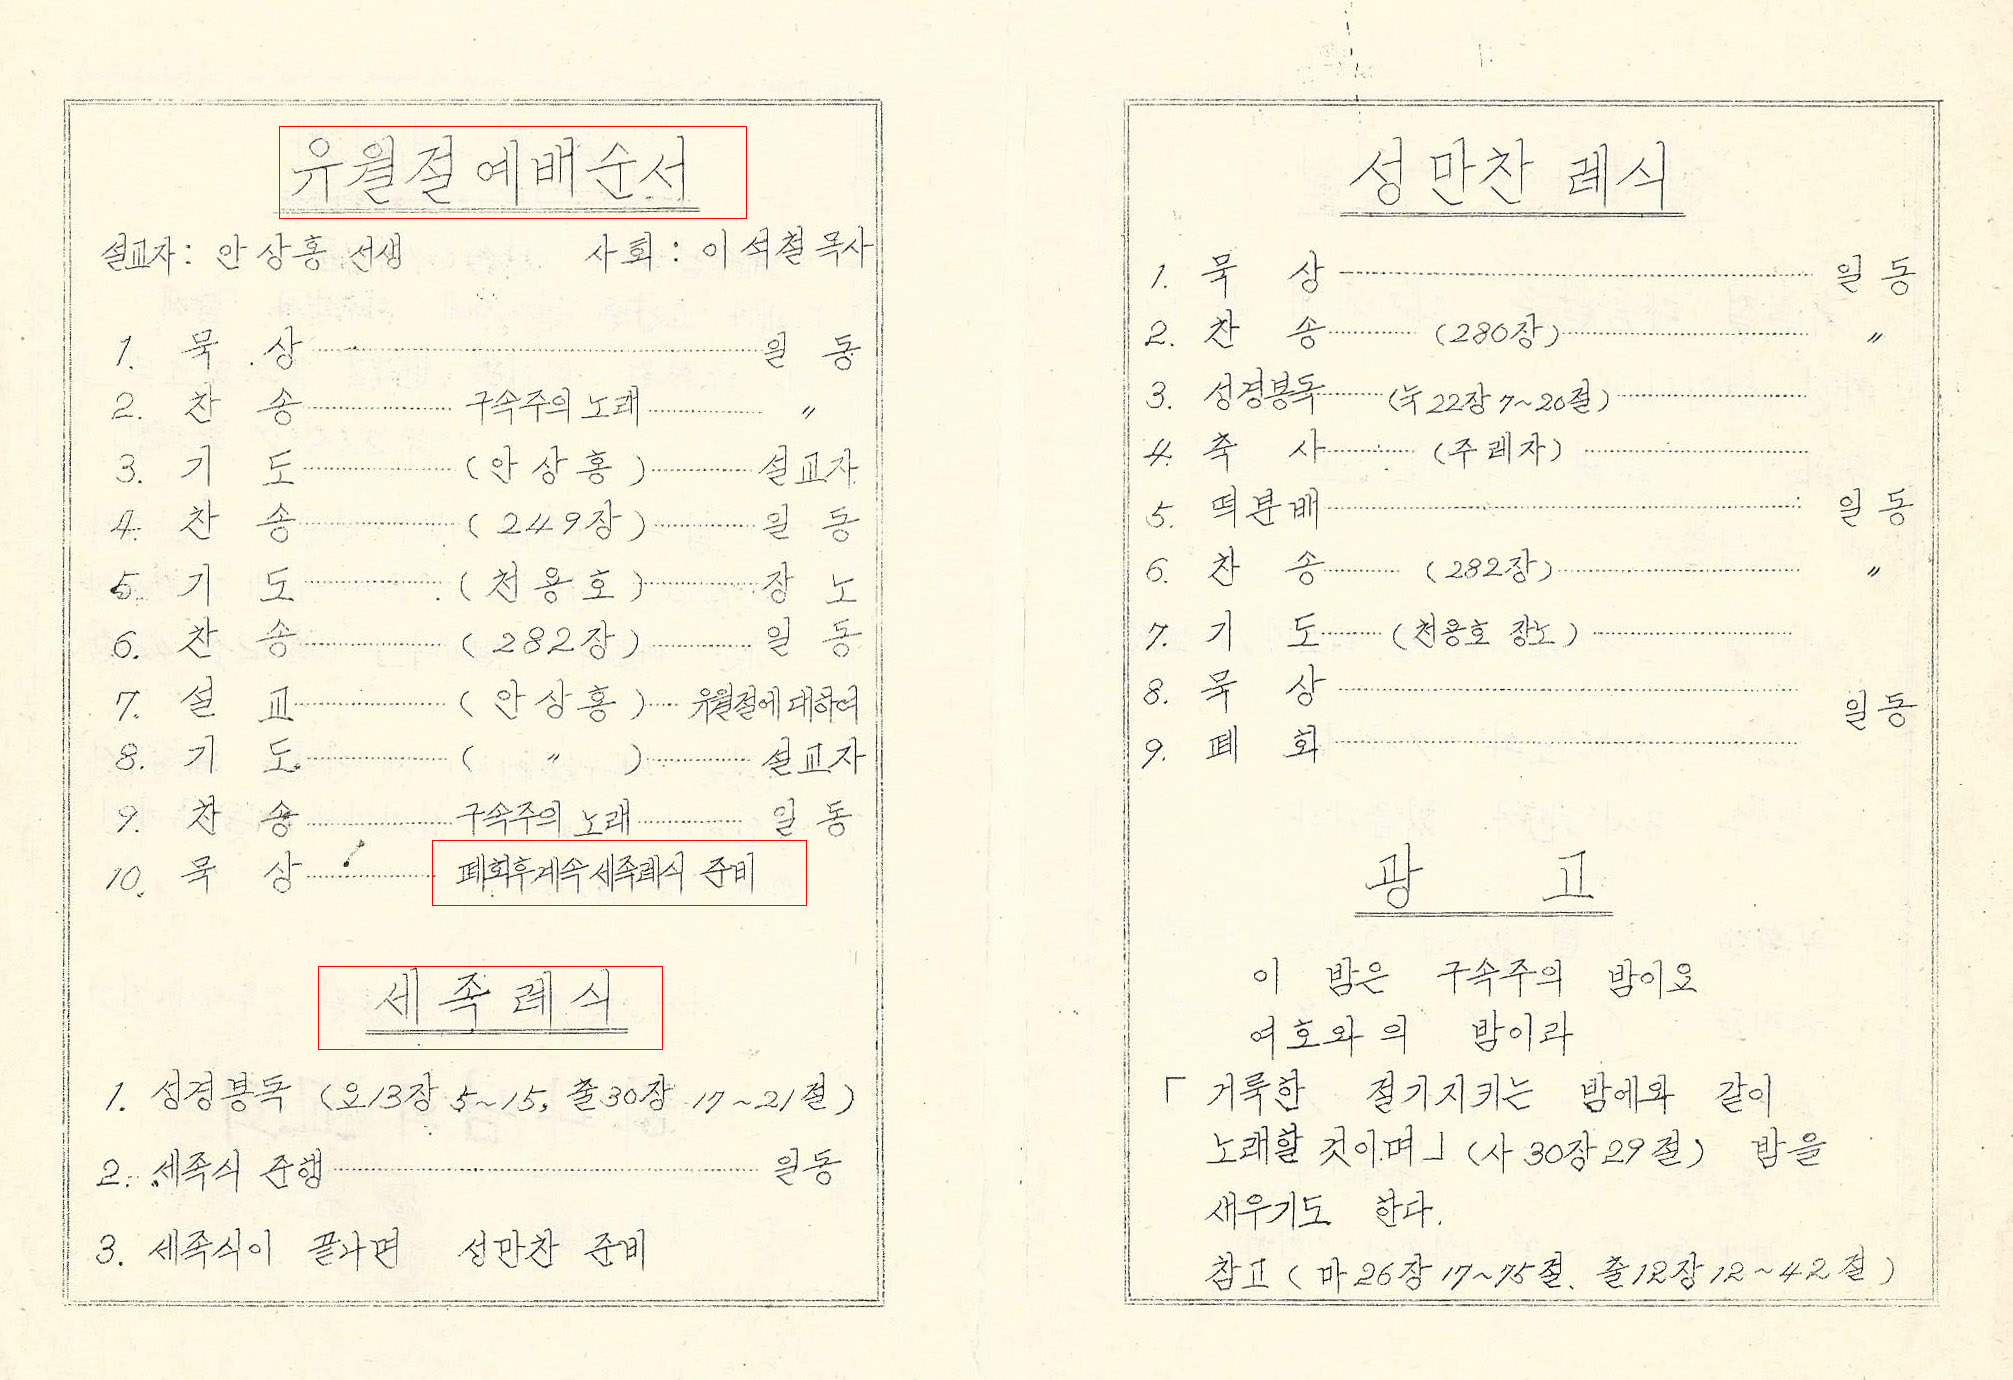 유월절 예배순서
설교자 : 안상홍 선생 사회 : 이석철 목사
1. 묵 상 일 동
2. 찬 송 구속주의 노래 〃
3. 기 도 (안상홍) 설교자
4. 찬 송 (249장) 일 동
5. 기 도 (천용호) 장 노
6. 찬 송 (282장) 일 동
7. 설 교 (안상홍) 유월절에 대하여
8. 기 도 ( 〃 ) 설교자
9. 찬 송 구속주의 노래 일 동
10. 묵 상 폐회후 계속 세족례식 준비
세 족 례 식
1. 성경봉독 (요13장 5~15, 출30장 17~21절)
2. 세족식 준행 일동
3. 세족식이 끝나면 성만찬 준비
성 만 찬 례 식
1. 묵 상 일 동
2. 찬 송 (280장) 〃
3. 성경봉독 (눅22장 7~20절)
4. 축 사 (주례자)
5. 떡분배 일 동
6. 찬 송 (282장) 〃
7. 기 도 (천용호 장노)
8. 묵 상
일 동
9. 폐 회
광 고
이 밤은 구속주의 밤이오
여호와의 밤이라
「거룩한 절기지키는 밤에와 같이
노래할 것이며」 (사 30장 29절) 밤을
새우기도 한다.
참고 ( 마 26장 17~75절. 출12장 12~42절 )